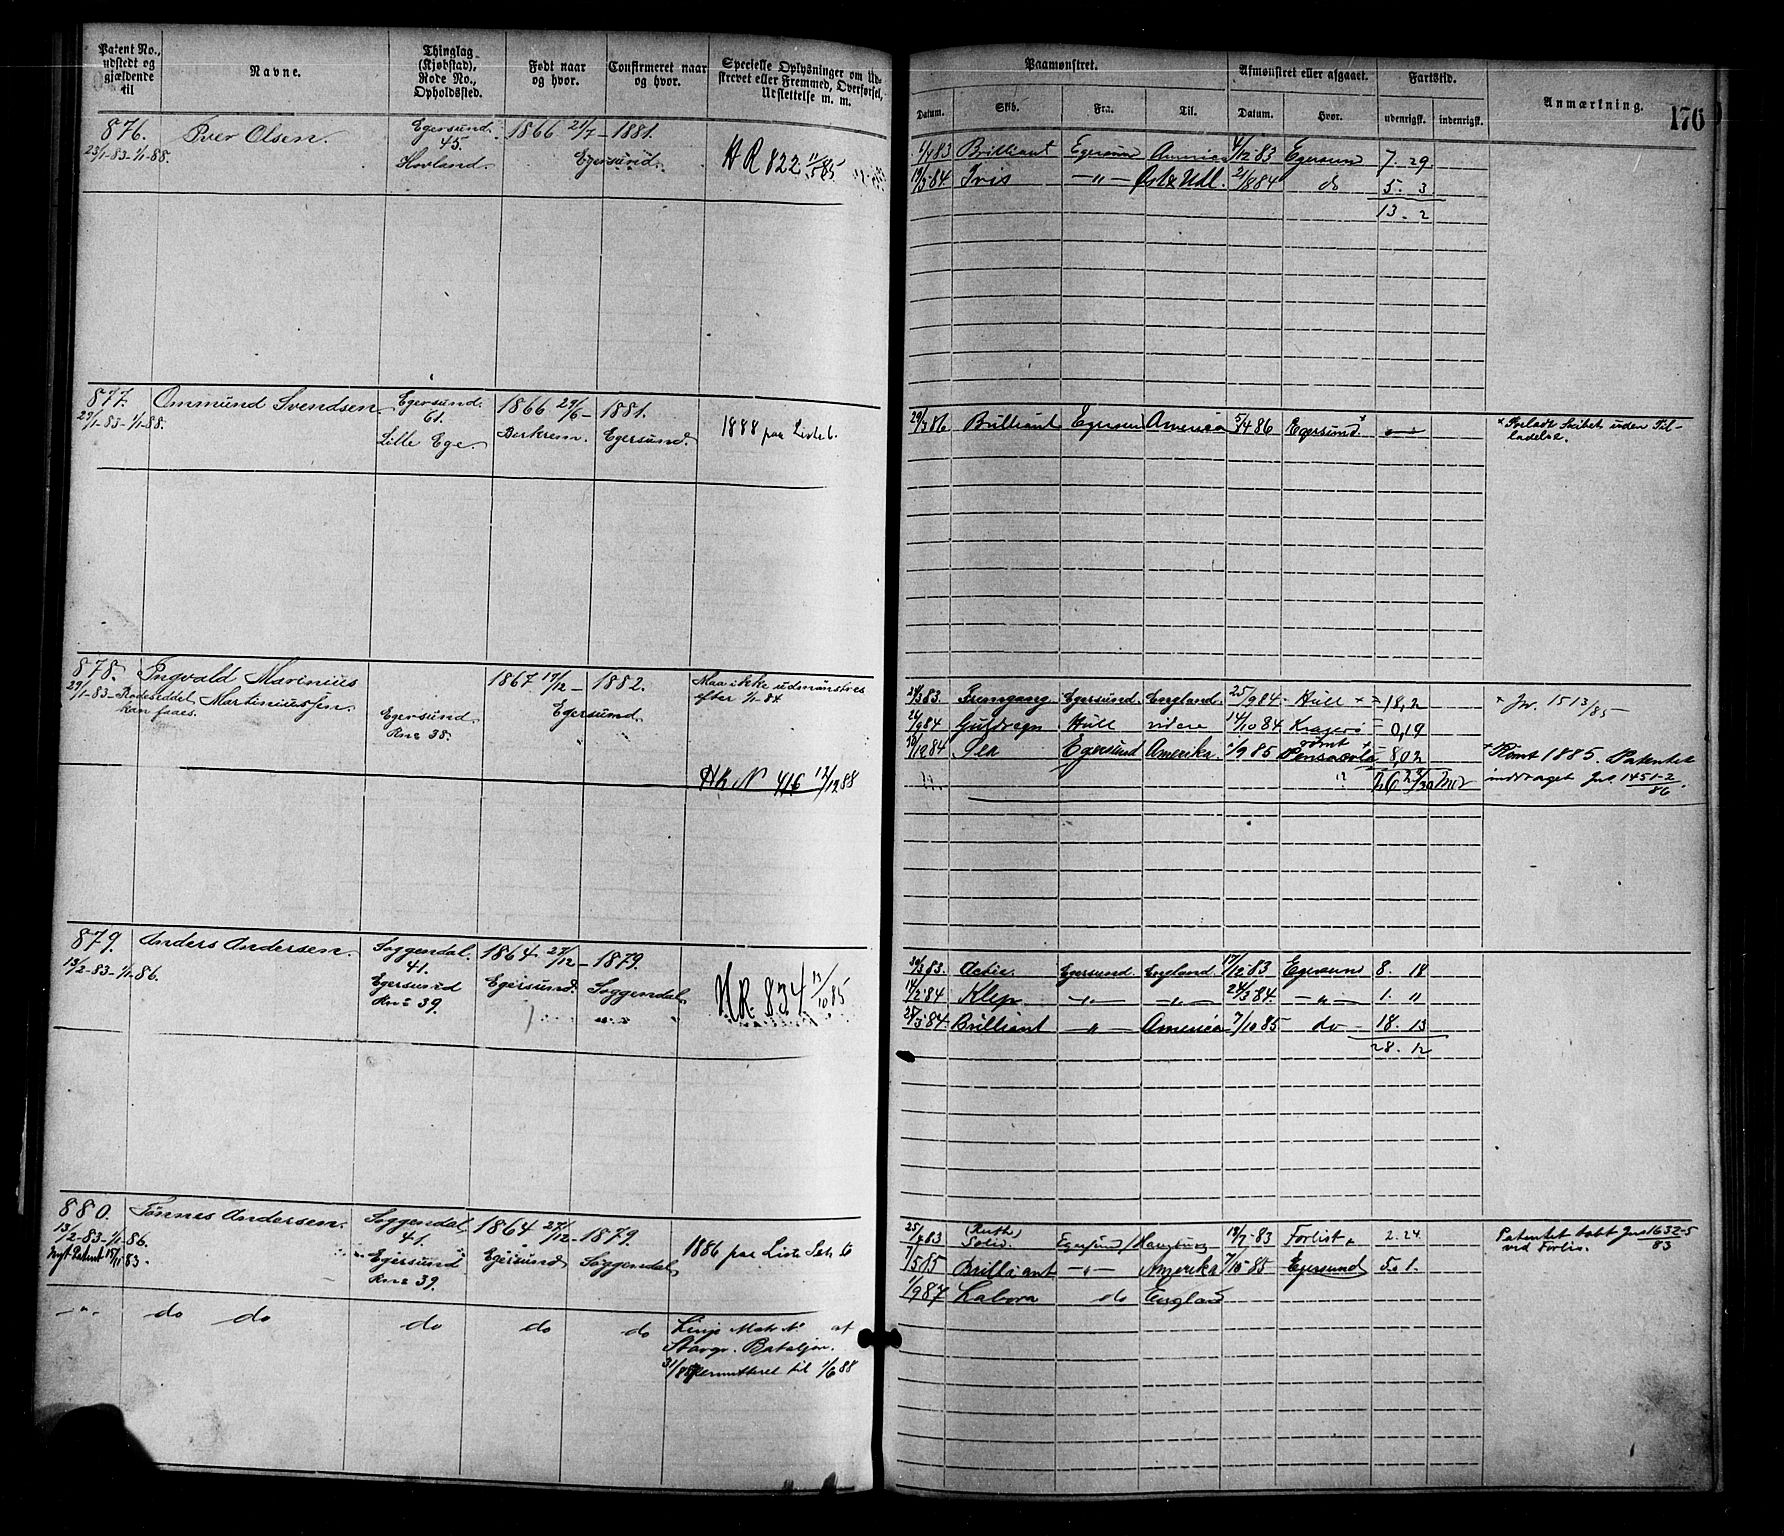 Patent No., udstedt og gjældende til
Navne.
Thinglag (Kjøbstad). Rode No., Opholdssted.
Født naar og hvor.
Confirmeret naar og hvor.
Specielle Oplysninger om Udskrevet eller Fremmed, Overførsel, Udslettelse m. m.
Paamønstret.
Datum.
Skib.
Fra.
Til.
Afmønstret eller afgaaet.
Datum.
Hvor.
Fartstid.
udenrigsk.
indenrigsk.
Anmærkning.
176
876.
23/1-83-1/1-88.
Olsen.
Egersund.
45.
Hovland.
1866 21/7 - 1881.
Egersund.
HR 822 11/5 85
83 Brilliant Egersund 4/12 83 Egersund 7. 29.
19/3 84 Iris —"— Øst & Udl. 21/8 84 do 5. 3
13. 2
877.
29/1-83-1/1-88.
Ommund Svendsen
Egersund.
61.
Lille Ege.
1866 29/6 - 1881.
Berkrem. Egersund.
1888 paa Liste
29/3 86 Brilliant Egersund America 5/4 86 Egersund
× Forladt Skibet uden Til-
ladelse.
878.
29/1-83-Rodeseddel
kan faaes.
Ingvald Marinius
Martiniussen.
Egersund
Rno 38.
1867 17/12 - 1882.
Egersund.
Maa ikke udmønstres
efter 1/1-84
HR N 416 12/12 88
83. Fremgang Egersund. England. 25/9 84 - Hull × = 18,2
84 Guldregn Hull videre 14/10 84 Kragerø = 0,19
84 Sea Egersund Amerika 1/9 85 rømt Pensacola = 8,02
× Jr. 1513/85
Rømt 1885. Patentet
inddraget Jnr. 1451-2/86.
879.
13/2-83-1/1-86.
Anders Andersen.
Soggendal.
41.
Egersund
Rno 39.
1864 27/12 - 1879.
Egersund. Soggendal.
HR 834 13/10 85
83. Activ Egersund. England. 17/12 83 Egersund 8. 18
14/2 84 Klep. —"— —"— 24/3 84. —"— 1. "
25/3 84 Brilliant —"— America 7/10 85 do 18. 13
28. 12
880.
13/2-83-1/1-86.
Nyt Patent 15/11 83.
Tønnes Andersen.
Soggendal,
41.
Egersund
Rno 39.
1864 27/12 - 1879.
Egersund Soggendal,
1886 paa Liste
25/4 83 (Ruth) Egersund Hamburg 19/7 83 Forlist 2. 24.
7/5 85 Brilliant —"— Amerika 7/10 85 Egersund 5. 1.
1/9 87 Labora do England
Patentet tabt Jnr 1632-5/83
ved Forlis.
—"— do do do do do
Linje Mats N. af
Stavgr. Bataljon.
permitteret til 1/6 88